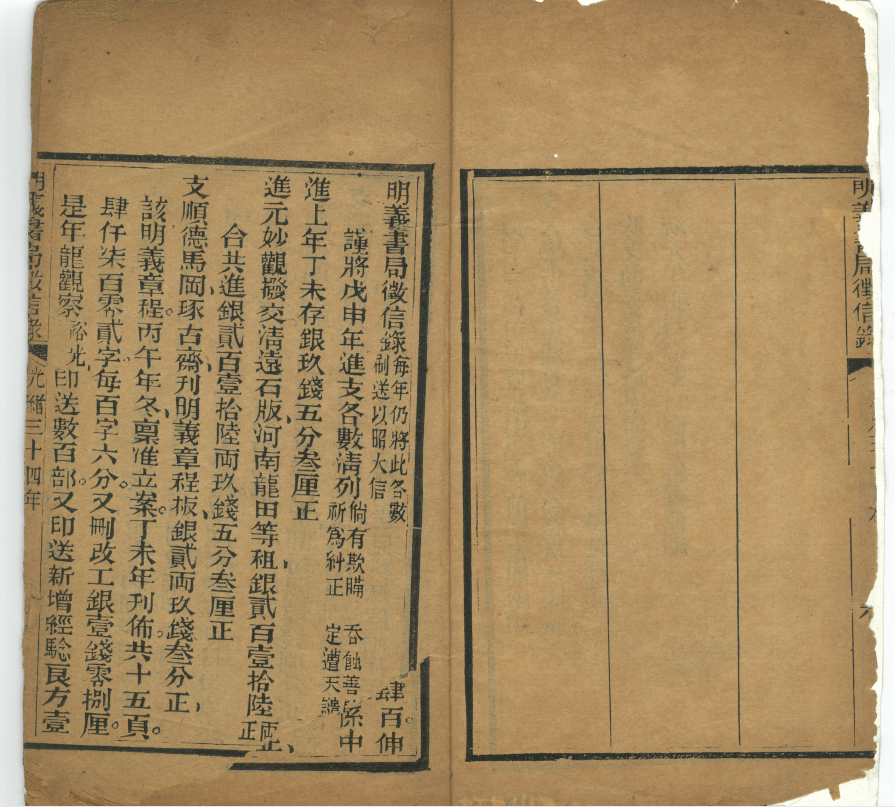 明義書局徵信錄
明義書局徵信錄每年仍將此各數刷送以昭大信
肆百伸
謹將戊申年進支各數清列倘有欺瞞祈為糾正吞蝕善定遭天譴係中
進上年丁未存銀玖錢五分叁厘正
進元妙觀撥交清遠石版河南龍田等租銀貳百壹拾陸両正
合共進銀貳百壹拾陸両玖錢五分叁厘正
支順德馬岡琢古齋刊明義章程板銀貳両玖錢叁分正
該明義章程丙午年冬禀准立案。丁未年刊佈共十五頁。
肆仟柒百零貳字每百字六分。又刪改工銀壹錢零捌厘。
是年龍觀察裕光印送數百部。又印送新增經驗良方壹
明義書局徵信錄 光緒三十四年